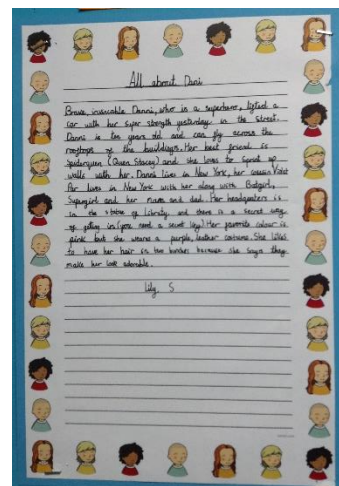 All about Dani
Brave, invincable Danni, who is a superhero, lifted a
car with her super strength yesterday in the street.
Danni is ten years old and can fly across the
rooftops of the buildings. Her best friend is
Spiderqueen (Queen Stacey) and she loves to sprint up
walls with her. Dannis lives in New York, her cousin Violet
Par lives in New York with her along with Batgirl,
Supergirl and her mam and dad. Her headquarters is
in the statue of Liberty and there is a secret way
of getting in (you need a secret key)! Her favorite colour is
pink but she wears a purple, leather costume. She likes
to have her hair in two bunches because she says they
make her look adorable.
Lily, S